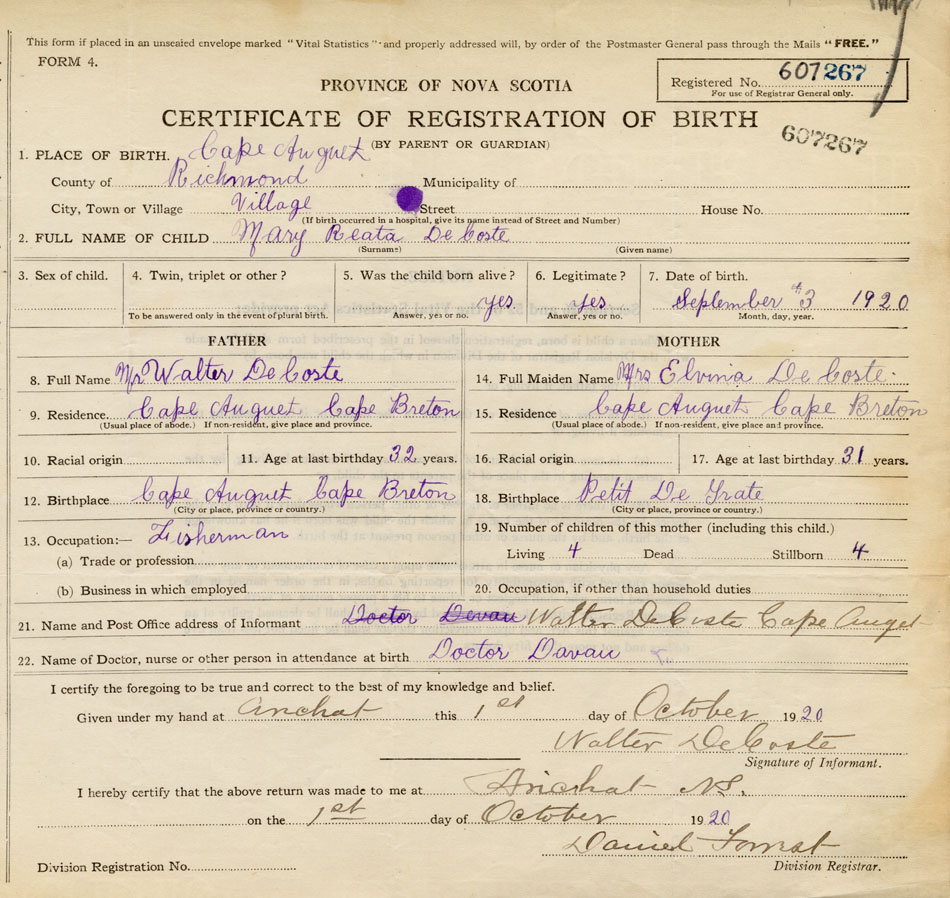 This form if placed in an unsealed envelope marked "Vital Statistics" and properly addressed will, by order of the Postmaster General pass through the Mails "FREE."
FORM 4.
Registered No. 607267
For use of Registrar General only.
PROVINCE OF NOVA SCOTIA
CERTIFICATE OF REGISTRATION OF BIRTH
607267
(BY PARENT OR GUARDIAN)
1. PLACE OF BIRTH. Cape Auguet
County of Richmond Municipality of
City, Town or Village Village Street House No.
(If birth occurred in a hospital, give its name instead of Street and Number)
2. FULL NAME OF CHILD Mary Reata De Coste
(Surname) (Given name)
3. Sex of child. 4. Twin, triplet or other? 5. Was the child born alive? yes 6. Legitimate? yes 7. Date of birth. September 3 1920
To be answered only in the event of plural birth. Answer, yes or no. Answer, yes or no. Month, day, year.
FATHER MOTHER
8. Full Name Mr Walter De Coste 14. Full Maiden Name Mrs Elvina De Coste
9. Residence. Cape Auguet Cape Breton 15. Residence Cape Auguet Cape Breton
(Usual place of abode.) If non-resident, give place and province. (Usual place of abode.) If non-resident, give place and province.
10. Racial origin 11. Age at last birthday 32 years. 16. Racial origin 17. Age at last birthday 31 years.
12. Birthplace Cape Auguet Cape Breton 18. Birthplace Petit De Grate
(City or place, province or country.) (City or place, province or country.)
13. Occupation:— Fisherman 19. Number of children of this mother (including this child.)
(a) Trade or profession Living 4 Dead Stillborn 4
(b) Business in which employed 20. Occupation, if other than household duties
21. Name and Post Office address of Informant Doctor Devau Walter DeCoste Cape Auget
22. Name of Doctor, nurse or other person in attendance at birth Doctor Davau
I certify the foregoing to be true and correct to the best of my knowledge and belief.
Given under my hand at Arichat this 1st day of October 1920
Walter DeCoste
Signature of Informant.
I hereby certify that the above return was made to me at Arichat N.S.
on the 1st day of October 1920
Daniel
Division Registration No. Division Registrar.